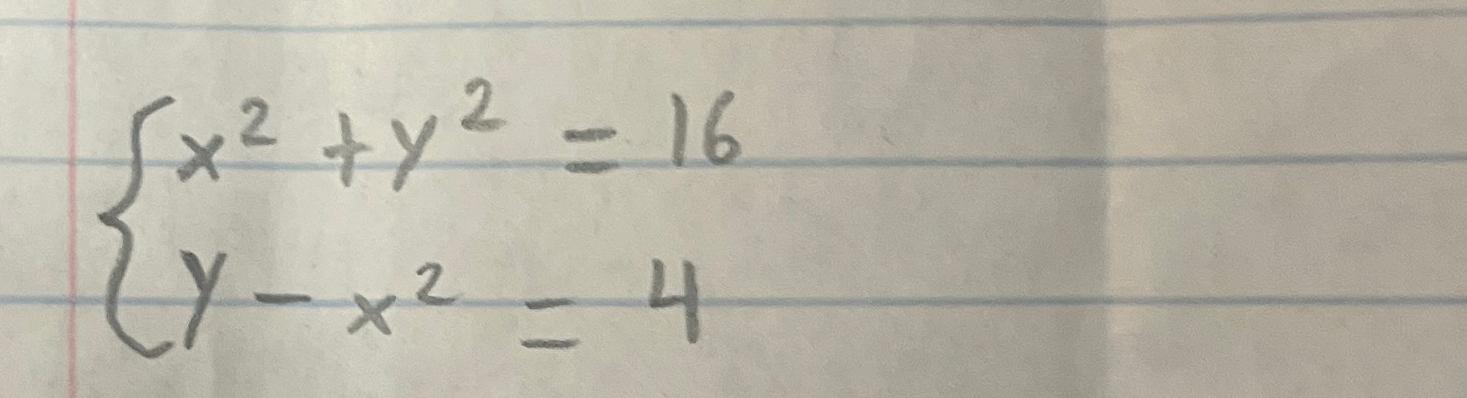 x² + y² = 16
y - x² = 4